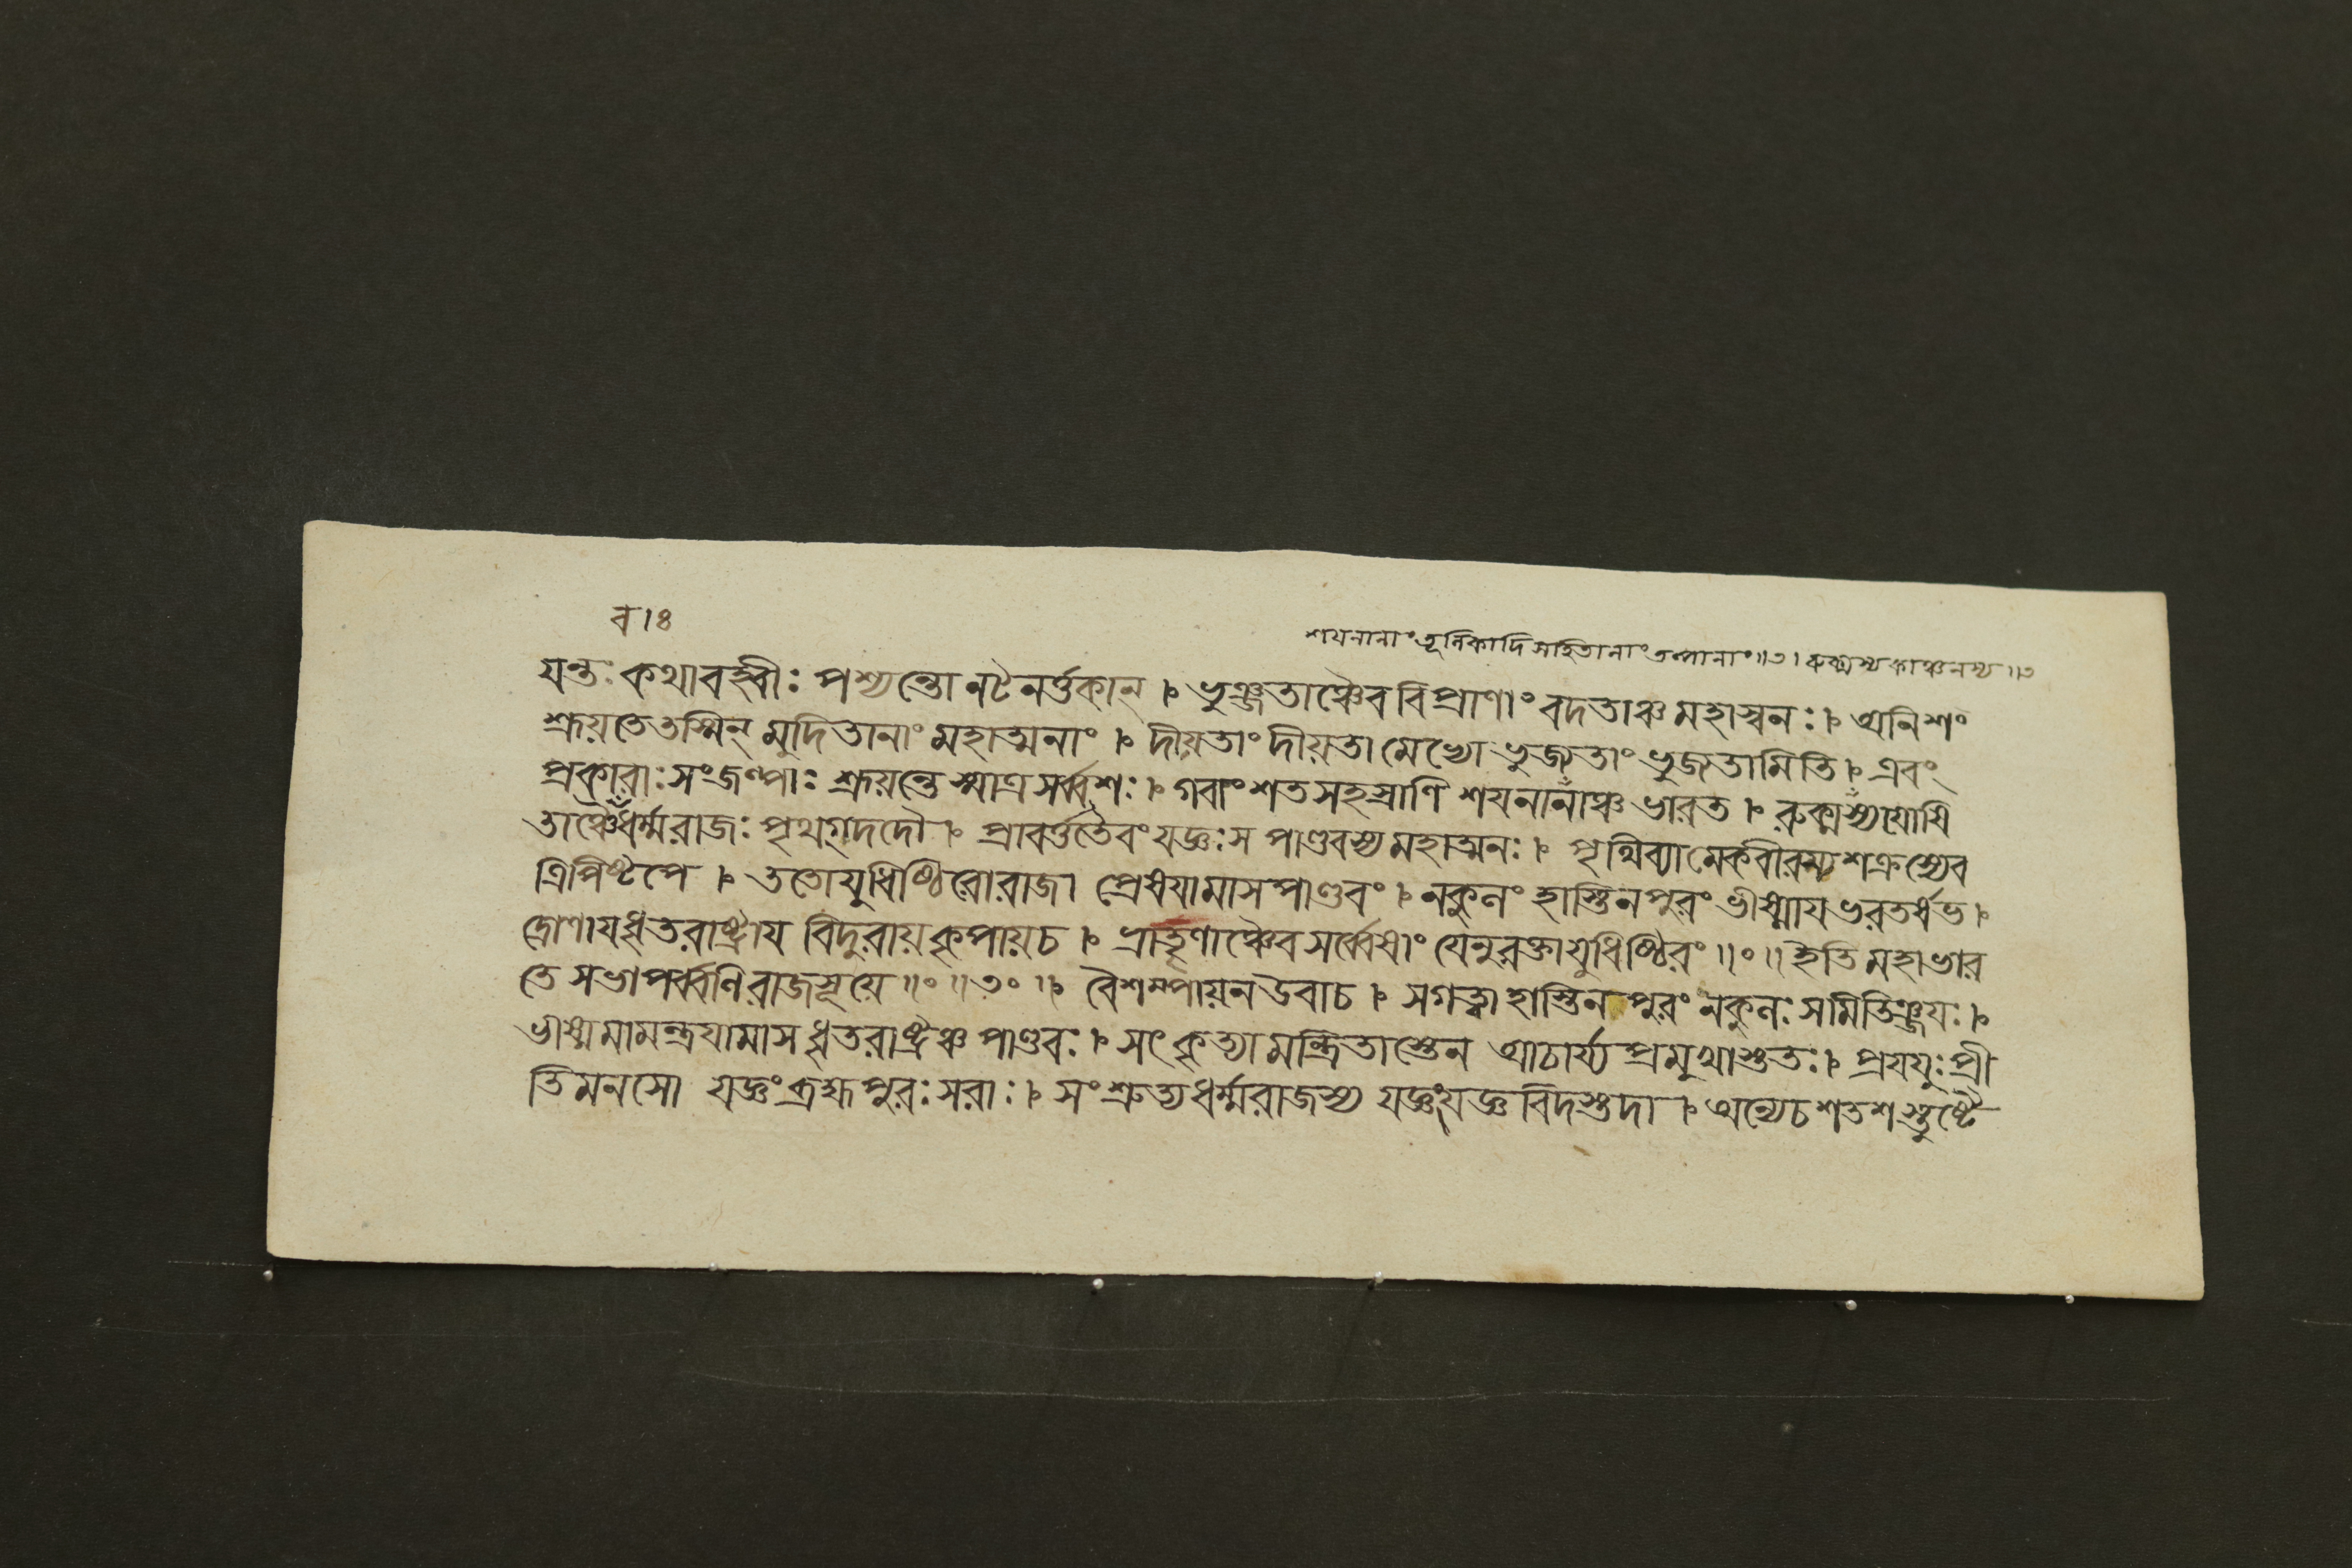 ব।ঃ
শযনানাং তূলিকাদি সহিতানাং তল্পানাং॥৩। রুক্মস্য কাঞ্চনস্য॥৩
যন্তঃ কথাবহ্বীঃ পশ্যন্তো নটনর্ত্তকান্।৮ ভুঞ্জতাঞ্চৈব বিপ্রাণাং বদতাঞ্চ মহাস্বনঃ।৮ অনিশং
শ্রূয়তে তস্মিন্ মুদিতানাং মহাত্মনাং।৮ দীয়তাং দীয়তামেষো ভুজ্যতাং ভুজ্যতামিতি।৮ এবং
প্রকারাঃ সংজল্পাঃ শ্রূয়ন্তে স্মাত্র সর্ব্বশঃ।৮ গবাং শতসহস্রাণি শয়নানাঞ্চ ভারত।৮ রুক্মস্য যোষি
তাঞ্চৈ ধর্ম্মরাজঃ পৃথগ্দদৌ।৮ প্রাবর্ত্ততৈবং যজ্ঞঃ স পাণ্ডবস্য মহাত্মনঃ।৮ পৃথিব্যামেকবীরস্য শক্রস্যেব
ত্রিপিষ্টপে।৮ ততো যুধিষ্ঠিরো রাজা প্রেষয়ামাস পাণ্ডবং।৮ নকুলং হাস্তিনপুরং ভীষ্মায ভরতর্ষভ।৮
দ্রোণায ধৃতরাষ্ট্রায বিদুরায় কৃপায় চ।৮ ভ্রাতৄণাঞ্চৈব সর্ব্বেষাং যেনুরক্তা যুধিষ্ঠিরং॥ং॥ ইতি মহাভার
তে সভাপর্ব্বণি রাজসূয়ে॥ং॥৩ং॥৮ বৈশম্পায়ন উবাচ।৮ স গত্বা হাস্তিনপুরং নকুলঃ সমিতিঞ্জয়ঃ।৮
ভীষ্মমামন্ত্রযামাস ধৃতরাষ্ট্রঞ্চ পাণ্ডবঃ।৮ সৎকৃত্যামন্ত্রিতাস্তেন আচার্য্য প্রমুখাস্ততঃ।৮ প্রযযুঃ প্রী
তিমনসো যজ্ঞং ব্রহ্মপুরঃসরাঃ।৮ সংশ্রুত্য ধর্ম্মরাজস্য যজ্ঞং যজ্ঞবিদস্তদা।৮ অন্যে চ শতশস্তুষ্টৈ